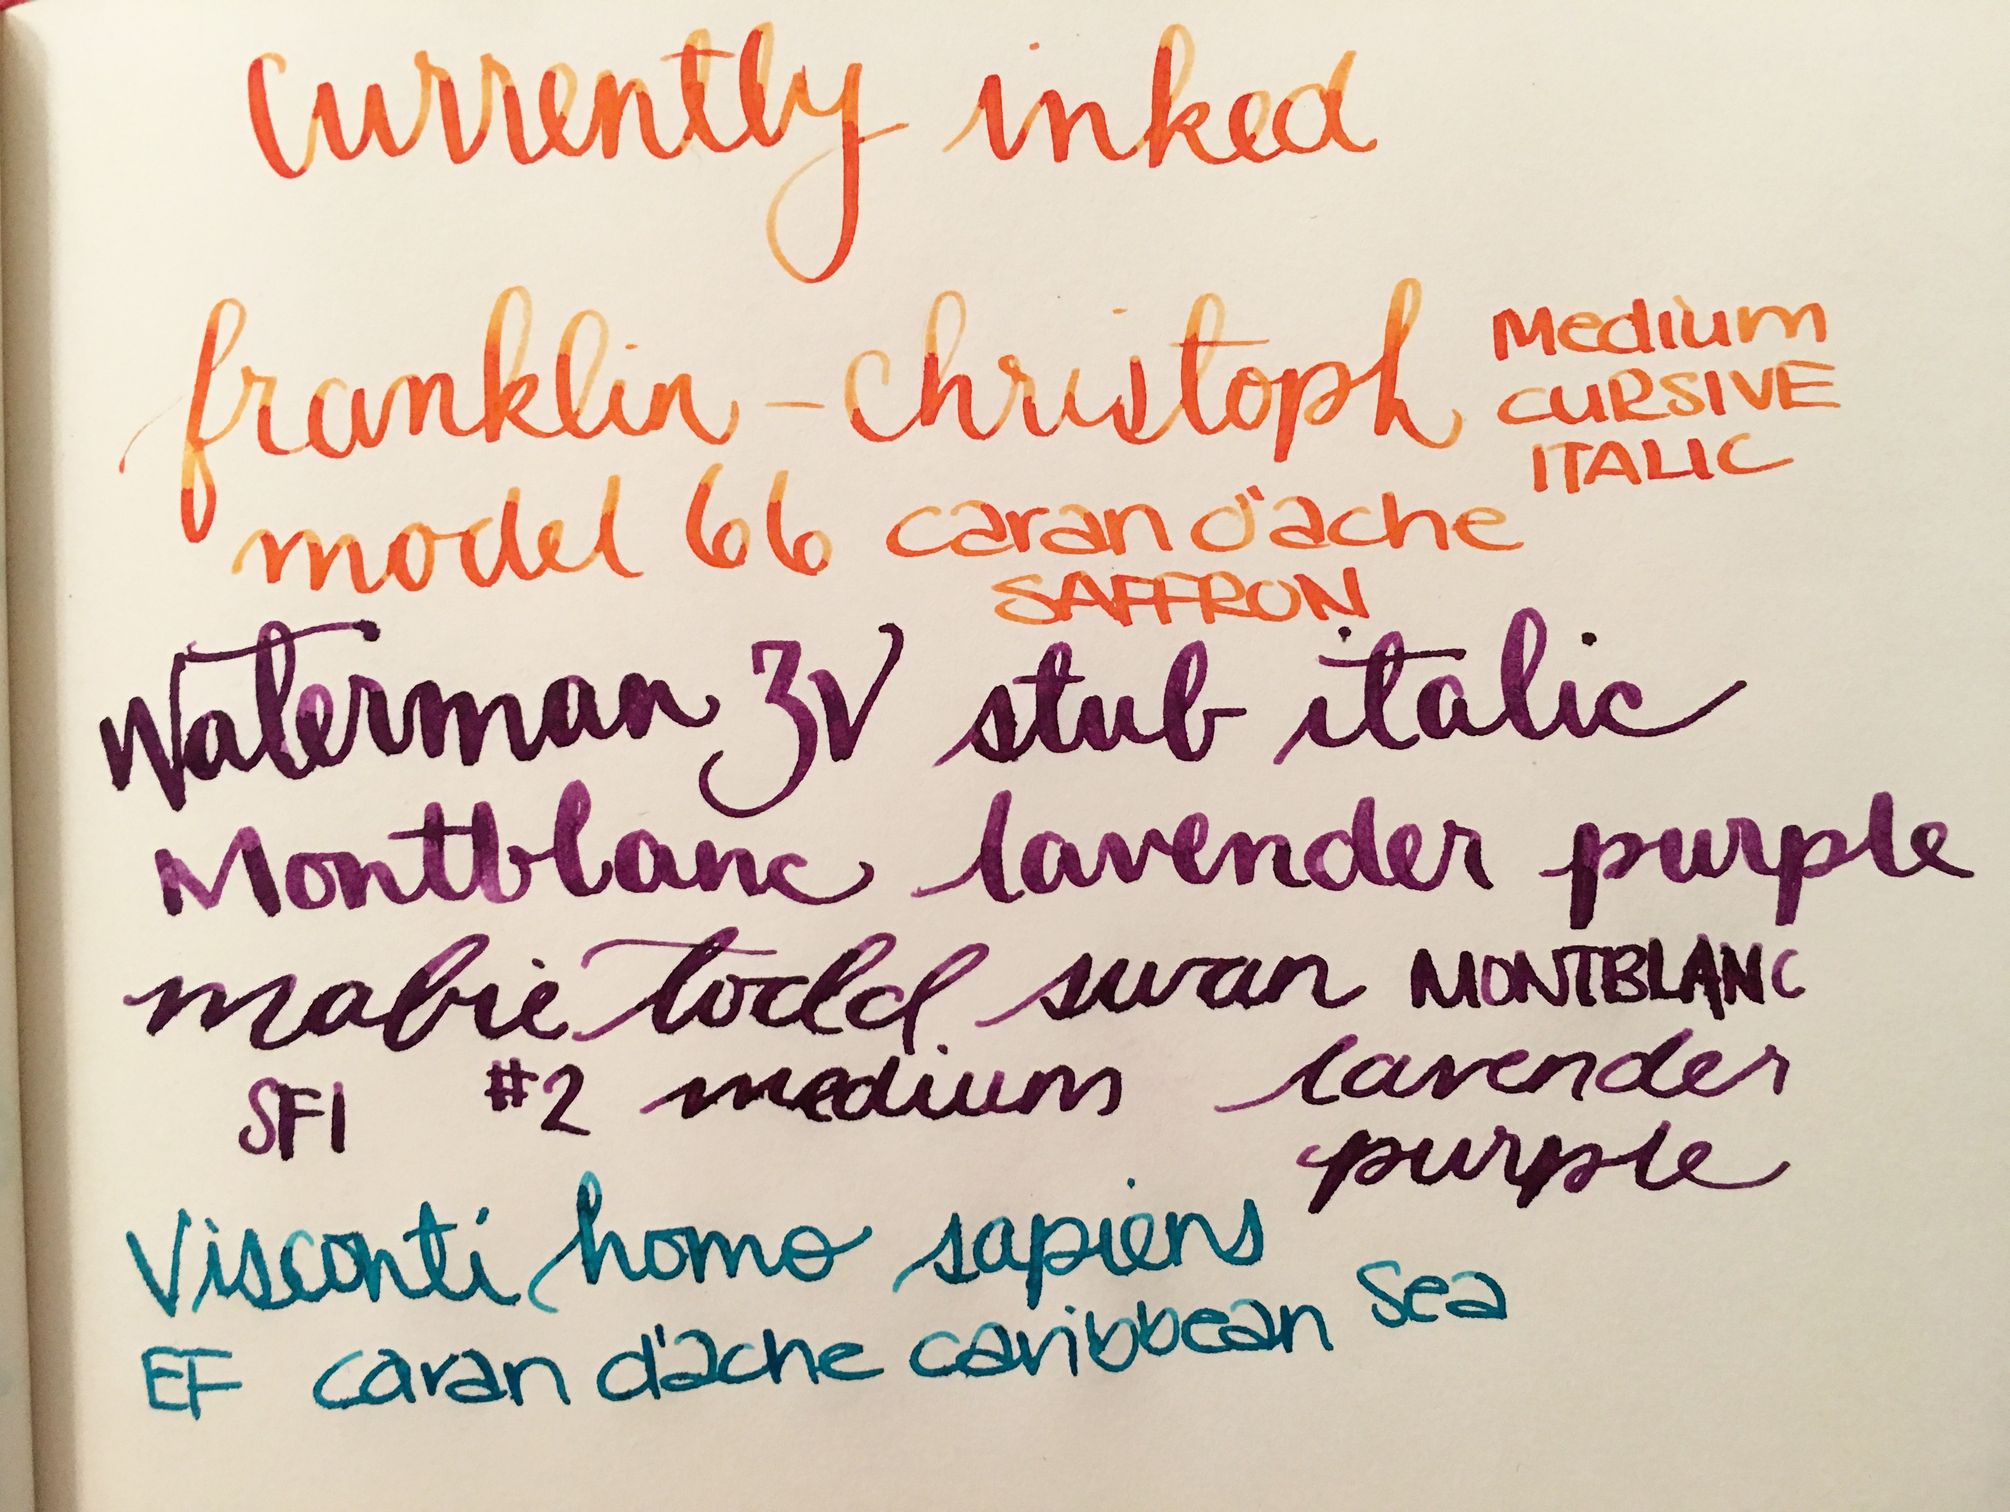 currently inked
franklin-christoph Medium
CURSIVE
ITALIC
model 66 caran d'ache
SAFFRON
Waterman 3V stub italic
Montblanc lavender purple
mabie todd swan MONTBLANC
SF1 #2 medium lavender
purple
Visconti homo sapiens
EF caran d'ache caribbean sea